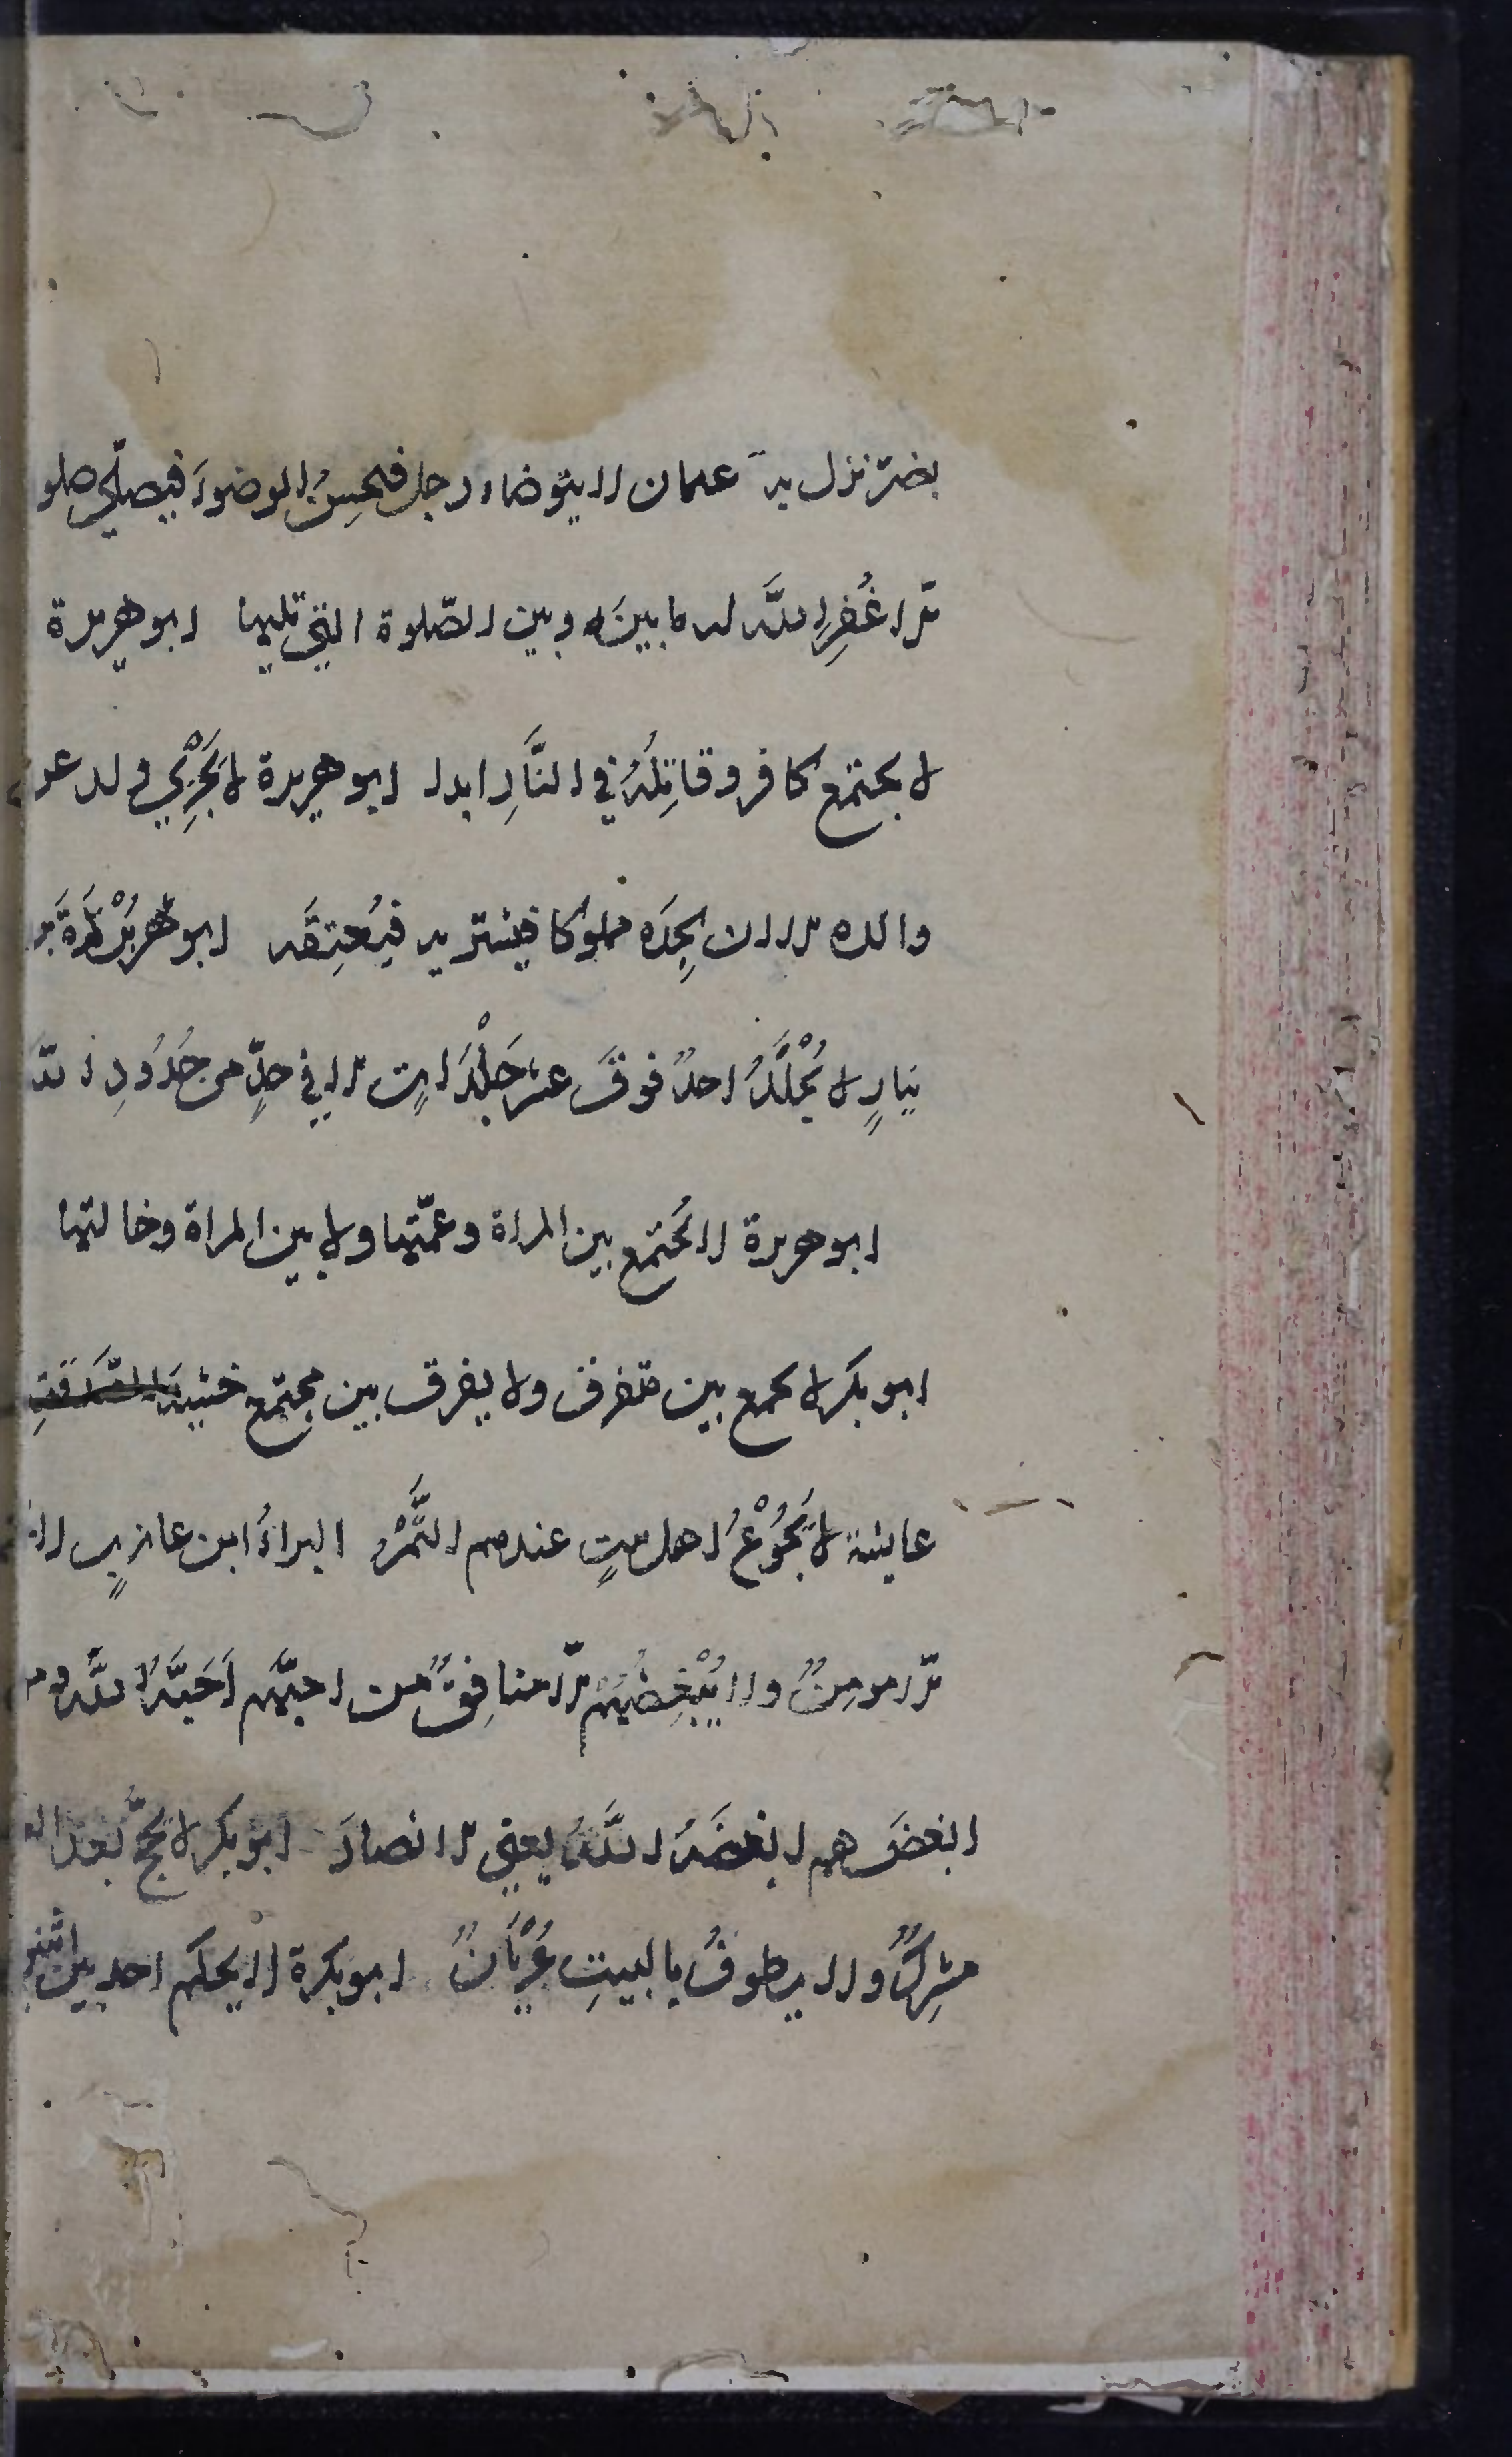 بضر نزل به عثمان لا يتوضاء رجل فيحسن الوضوء فيصلي صلو
ة الا غفر الله له ما بينه وبين الصّلوة التي تليها ابو هريرة
لا يجتمع كافر وقاتله في النّار ابدا ابو هريرة لا يجزي ولد عن
والده الا ان يجده مملوكا فيشتريه فيعتقه ابو هريرة بن
نيار لا يجلد احد فوق عشر جلدات الا في حدّ من حدود الله
ابو هريرة لا يجتمع بين المراة وعمّتها ولا بين المراة وخالتها
ابو بكر لا يجمع بين متفرق ولا يفرق بين مجتمع خشية الصّدقة
عايشة لا يجوع اهل بيت عندهم التّمر البراء ابن عازب لا
الا مومن ولا يبغضهم الا منافق من احبّهم احبّه الله ومن
ابغض هم ابغضه الله يعني الانصار ابو بكر لا يحجّ بعد العام
مشرك ولا يطوف بالبيت عريان ابو بكرة لا يحكم احد بين اثنين